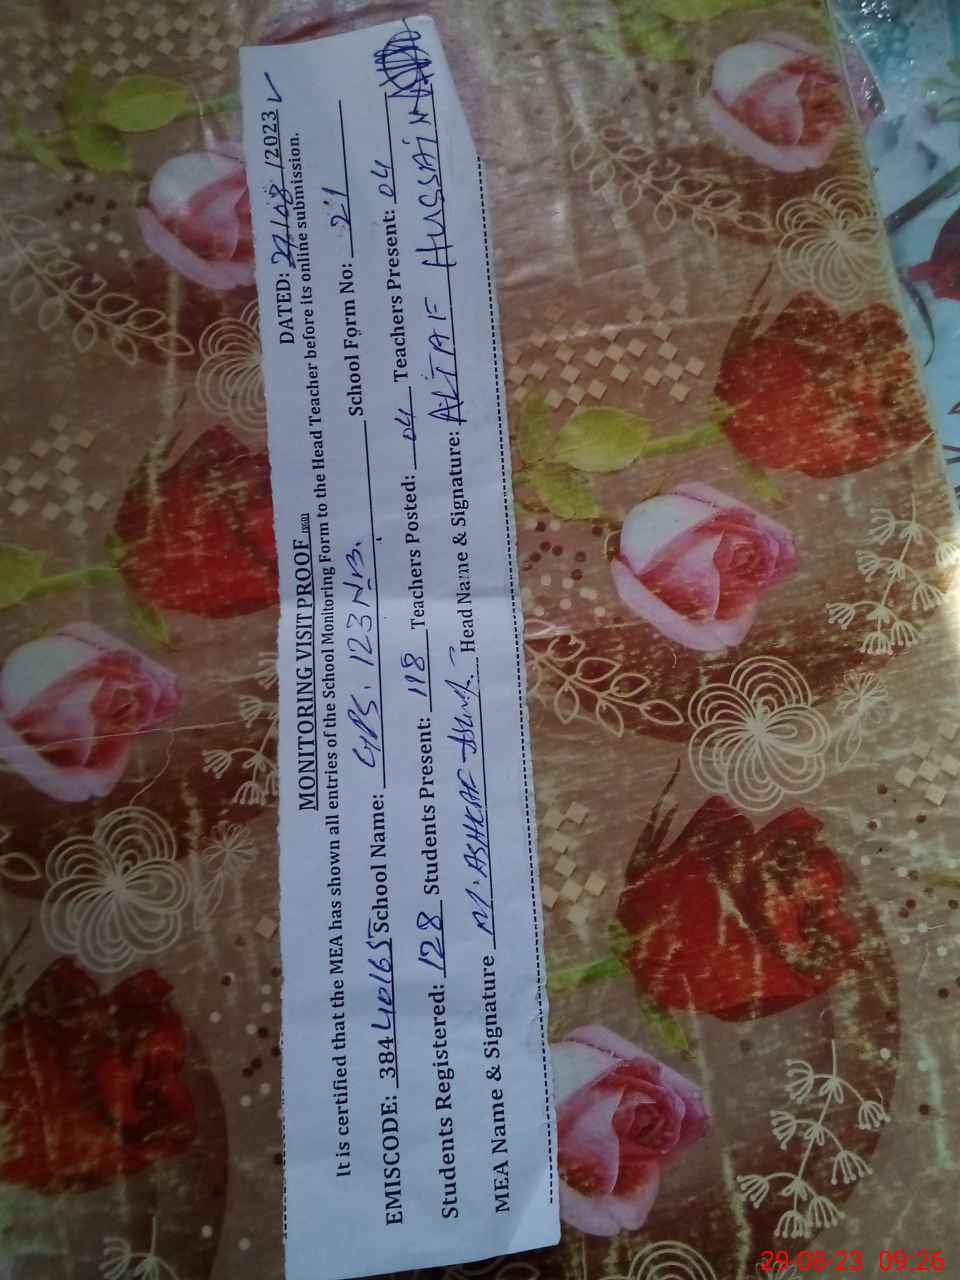 MONITORING VISIT PROOF
DATED: 29/08/2023
It is certified that the MEA has shown all entries of the School Monitoring Form to the Head Teacher before its online submission.
EMISCODE: 38440165 School Name: GPS. 123 N.B. School Form No: 21
Students Registered: 128 Students Present: 118 Teachers Posted: 04 Teachers Present: 04
MEA Name & Signature M. ASHRAF Head Name & Signature: ALTAF HUSSAIN
29-08-23 09:26